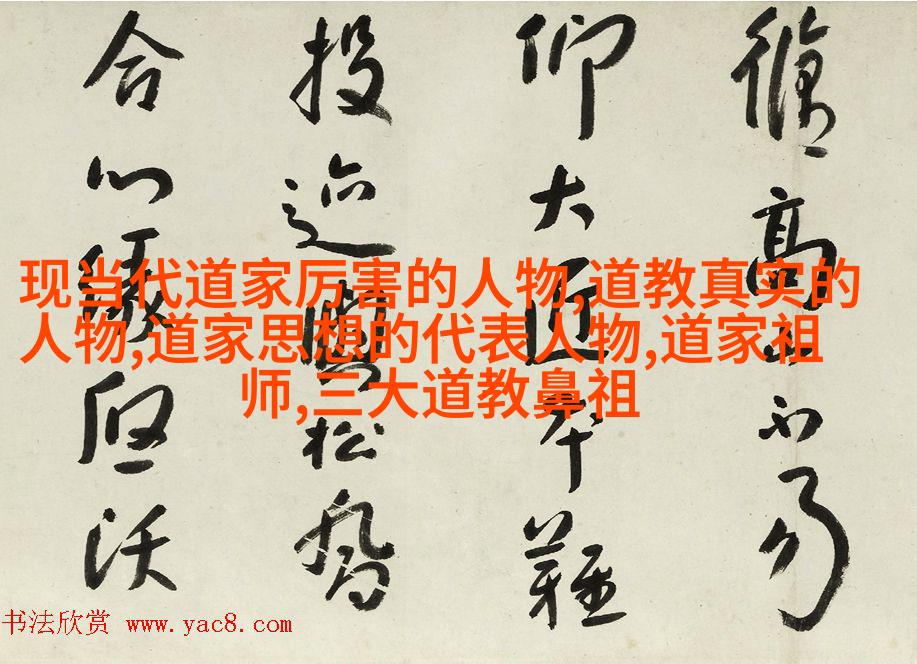 高不易
仰大匠難
投迹松
合沃
现当代道家厉害的人物,道教真实的
人物,道家思想的代表人物,道家祖
师,三大道教鼻祖
书法欣赏 www.yac8.com